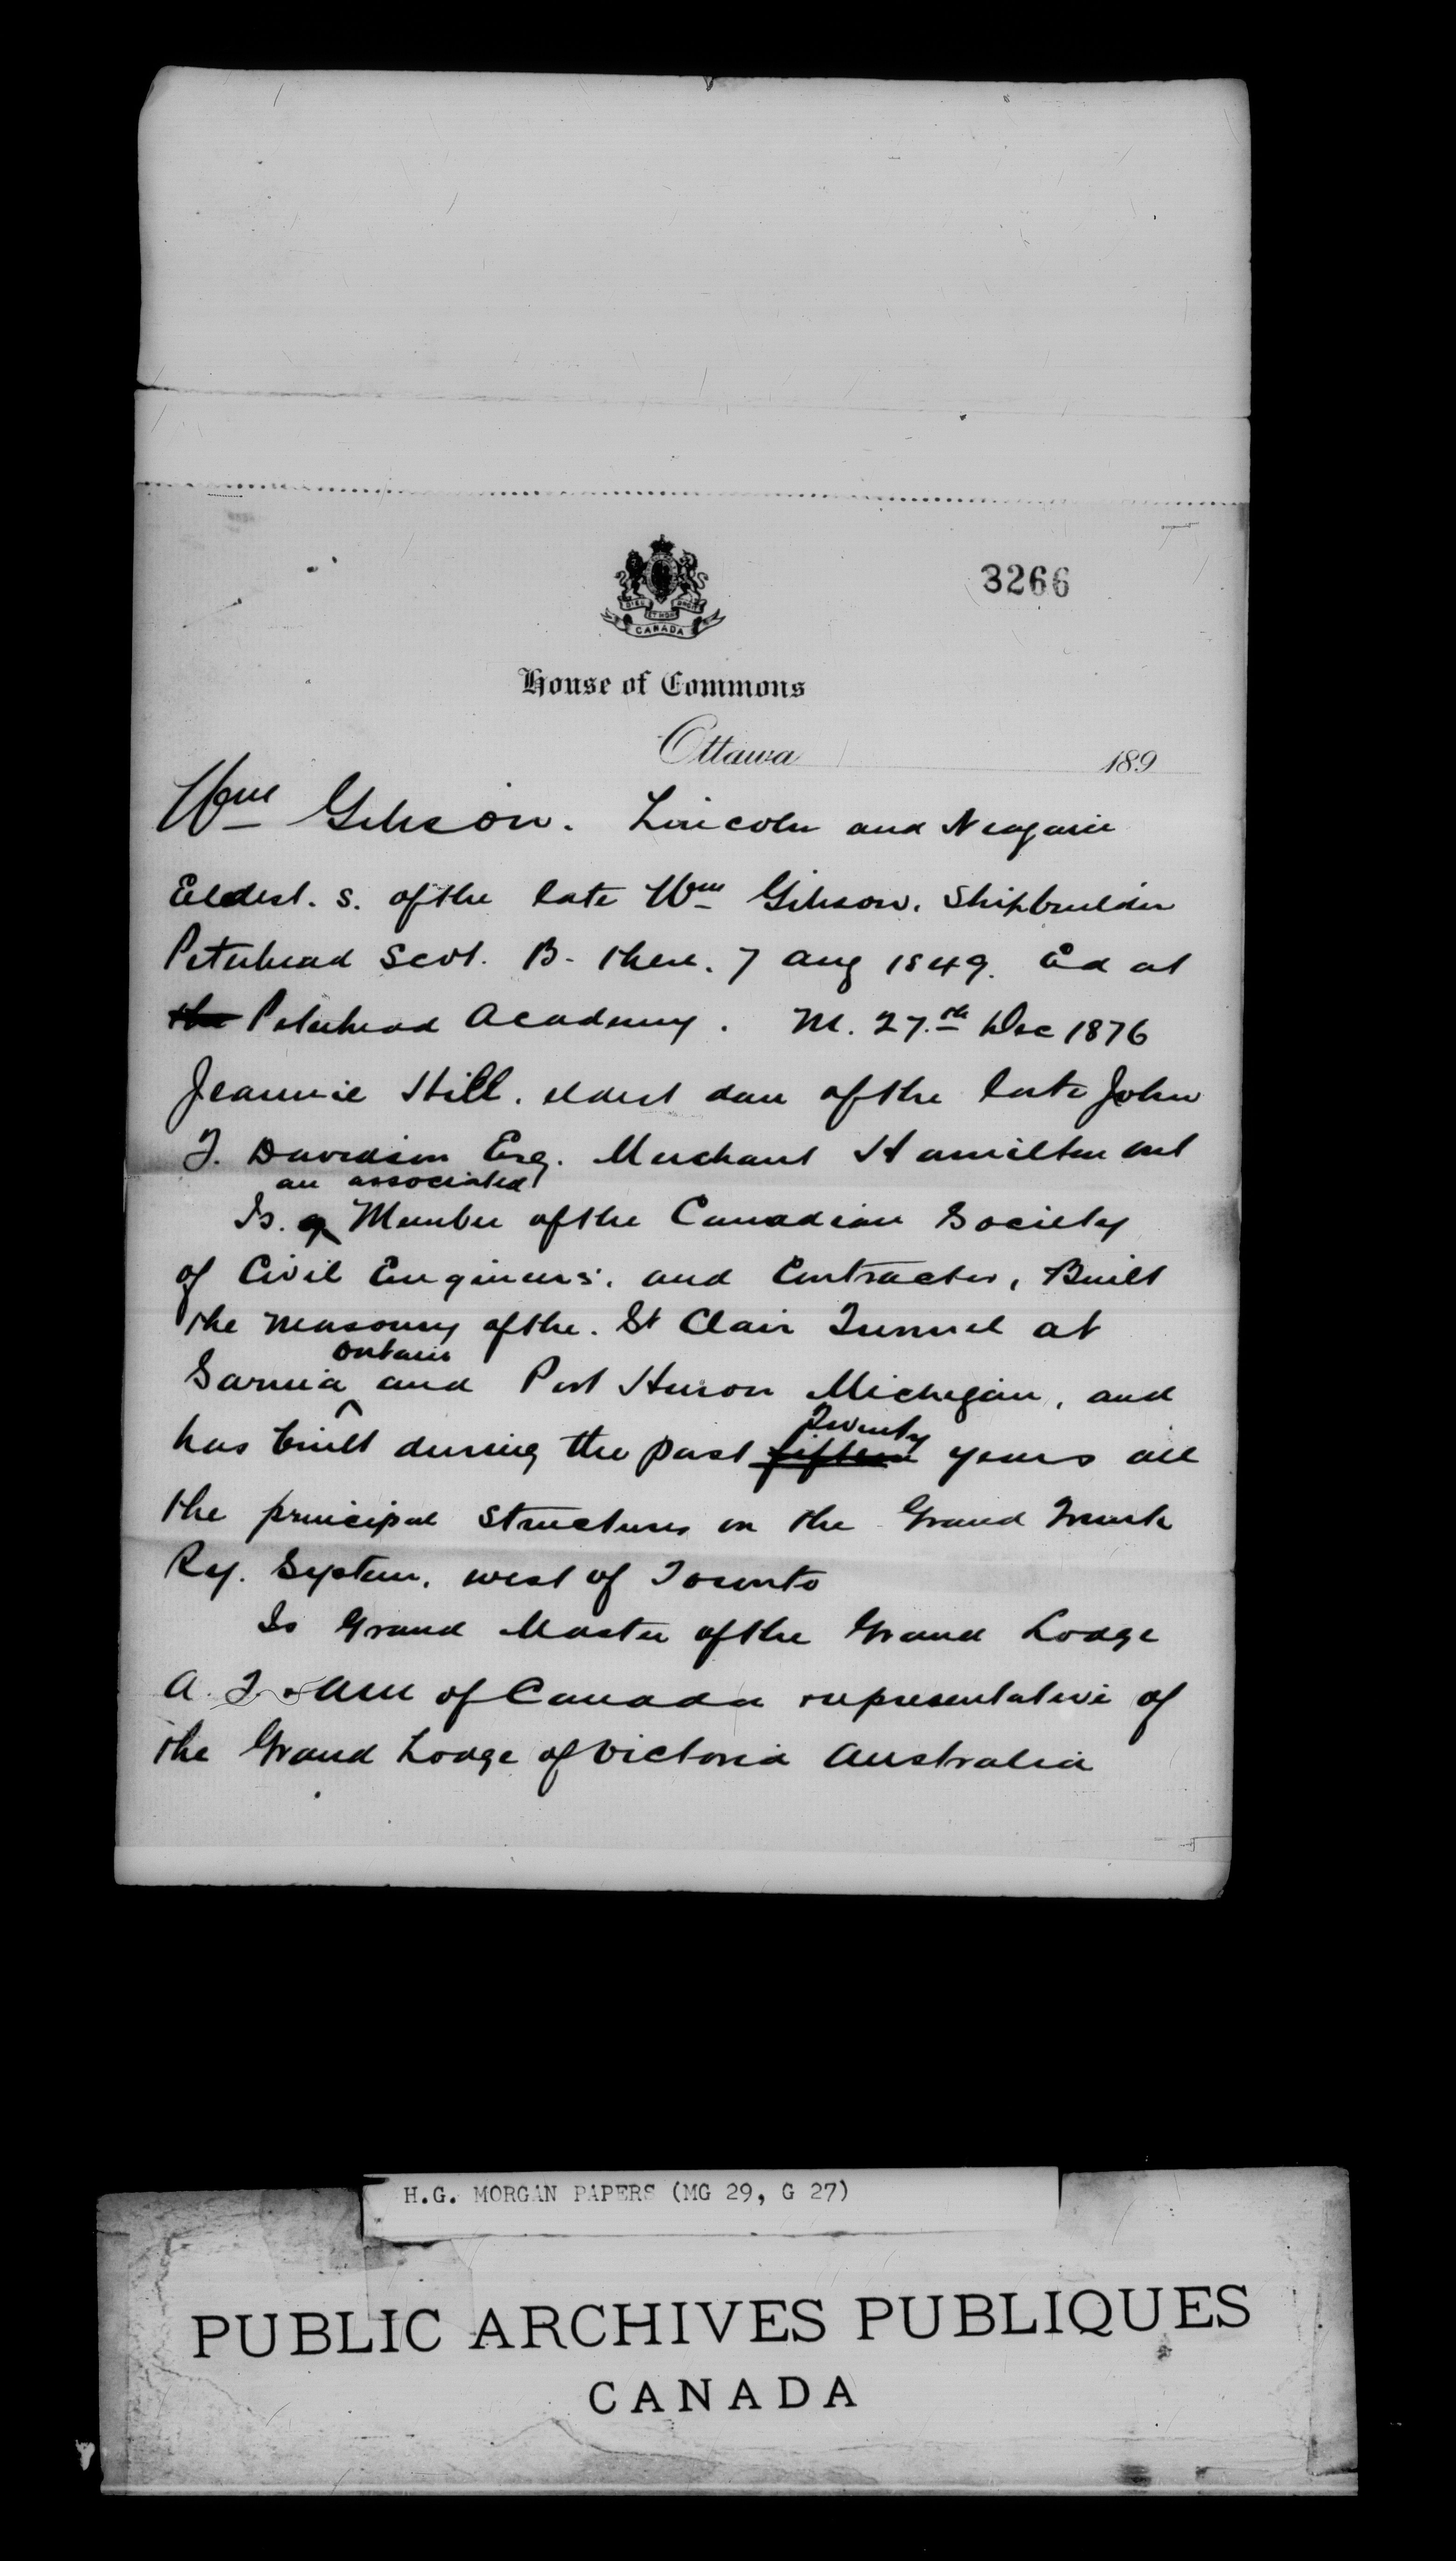 3266
DIEU ET MON DROIT
CANADA
House of Commons
Ottawa 189
Wm Gibson. Lincoln and Niagara
Eldest. s. of the late Wm Gibson. Shipbuilder
Peterhead Scot. B. there. 7 Aug 1849. Ed at
the Peterhead Academy. M. 27th Dec 1876
Jeannie Hill. eldest dau of the late John
F. Davidson Esq. Merchant Hamilton Ont
an associated
Is. a Member of the Canadian Society
of Civil Engineers. and Contractor, Built
the masonry of the. St Clair Tunnel at
Ontario
Sarnia ^ and Port Huron Michigan, and
Twenty
has built during the past fifteen years all
the principal structures on the Grand Trunk
Ry. System. west of Toronto
Is Grand Master of the Grand Lodge
A. F. & A M of Canada representative of
the Grand Lodge of Victoria Australia
H.G. MORGAN PAPERS (MG 29, G 27)
PUBLIC ARCHIVES PUBLIQUES
CANADA